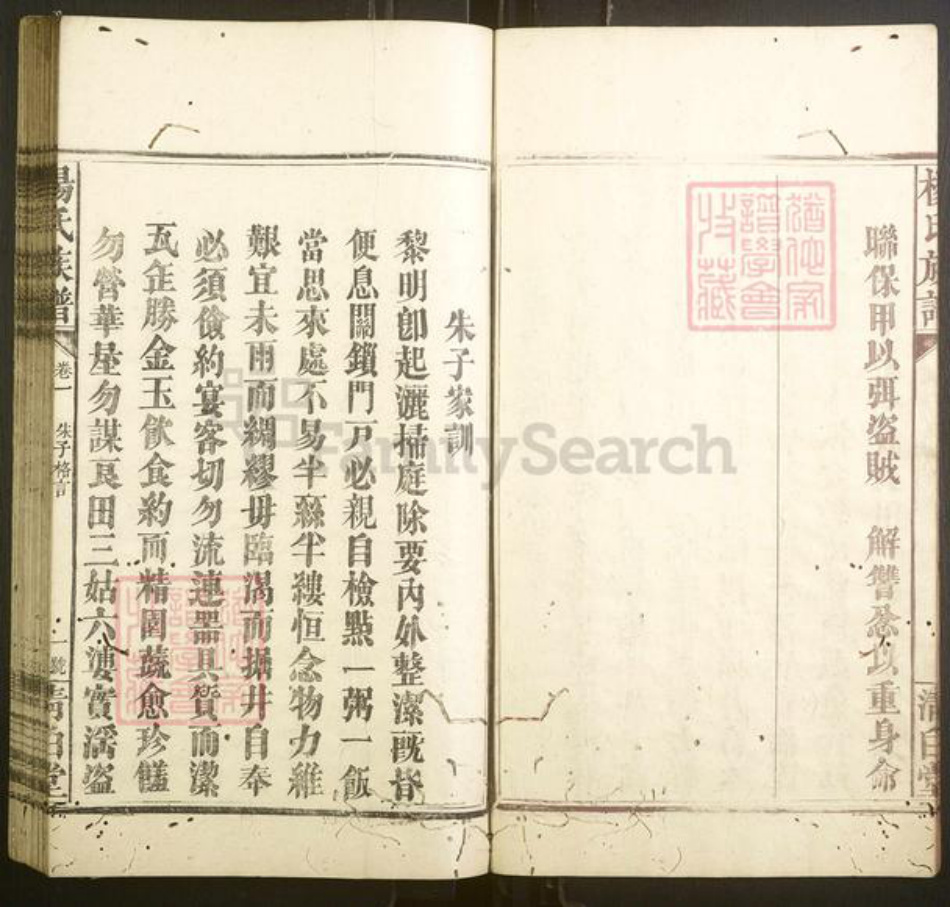 楊氏族譜
清白堂
聯保甲以弭盜賊 解讐忿以重身命
朱子家訓
黎明卽起灑掃庭除要內外整潔旣昏
便息關鎖門戶必親自檢點一粥一飯
當思來處不易半絲半縷恒念物力維
艱宜未雨而綢繆毋臨渴而掘井自奉
必須儉約宴客切勿流連器具質而潔
瓦缶勝金玉飲食約而精園蔬愈珍饈
勿營華屋勿謀良田三姑六婆實淫盜
楊氏族譜
卷一 朱子格言
一號
清白堂
FamilySearch